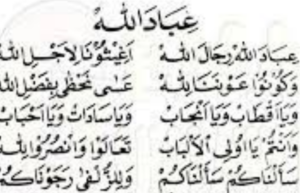 عِبَادَ اللهْ
عِبَادَ اللهْ رِجَالَ اللهْ اَغِيْثُوْنَا لِاَجْلِ اللهْ
وَكُوْنُوْا عَوْنَنَا لِلهْ عَسَى نَحْظَى بِفَضْلِ اللهْ
وَيَا اَقْطَابْ وَيَا اَنْجَابْ وَيَا سَادَاتْ وَيَا اَحْبَابْ
وَاَنْتُمْ يَا اُولِى الْاَلْبَابْ تَعَالَوْا وَانْصُرُوْا لِلهْ
سَاَلْنَاكُمْ سَاَلْنَاكُمْ وَلِلزُّلْفَى رَجَوْنَاكُمْ